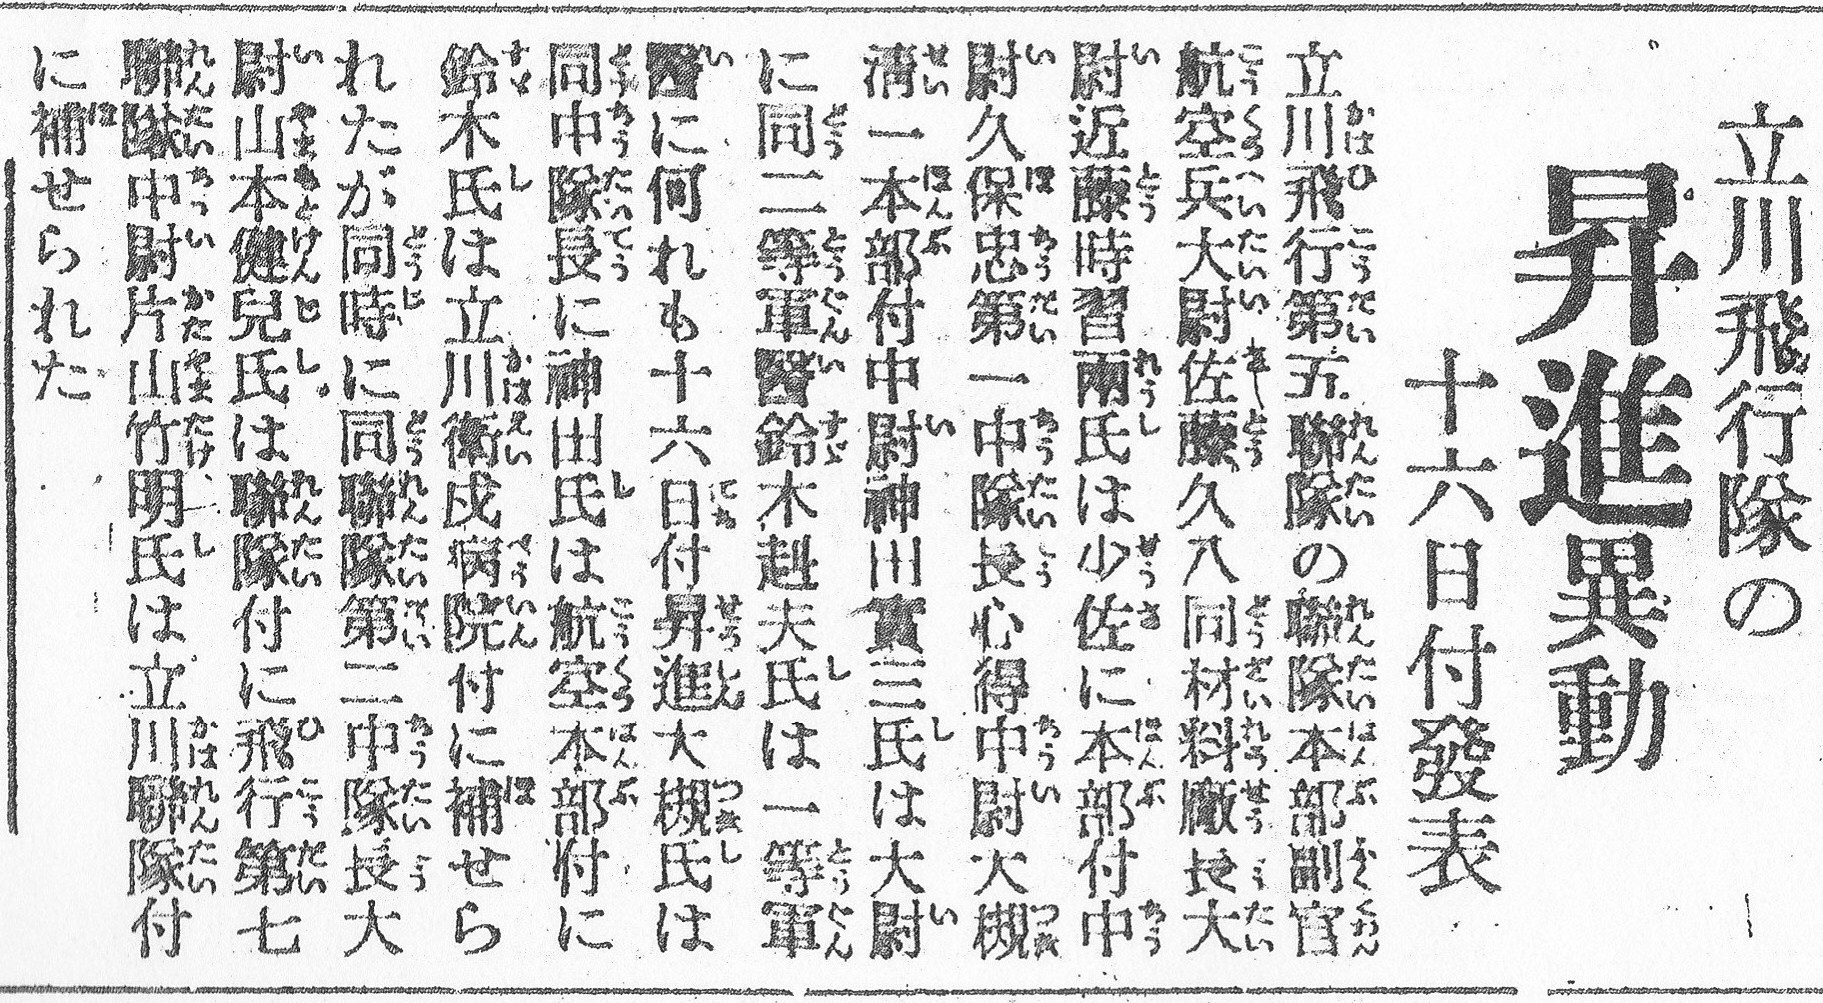 立川飛行隊の
昇進異動
十六日付發表
立川飛行第五聯隊の聯隊本部副官
航空兵大尉佐藤久八同材料廠長大
尉近藤時習兩氏は少佐に本部付中
尉久保忠第一中隊長心得中尉大槻
淸一本部付中尉神田實三氏は大尉
に同二等軍醫鈴木赳夫氏は一等軍
醫に何れも十六日付昇進大槻氏は
同中隊長に神田氏は航空本部付に
鈴木氏は立川衛戍病院付に補せら
れたが同時に同聯隊第二中隊長大
尉山本健兒氏は聯隊付に飛行第七
聯隊中尉片山竹明氏は立川聯隊付
に補せられた